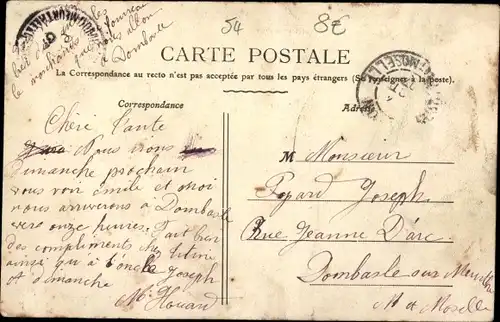 54
8E
CARTE POSTALE
La Correspondance au recto n'est pas acceptée par tous les pays étrangers (Se renseigner à la poste).
Correspondance
Adresse
Chère tante
Nous irons
dimanche prochain
vous voir Émile et moi
nous arriverons à Dombasle
vers onze heures. Fait bien
des compliments chez titine
ainsi qu'à l'oncle Joseph
A dimanche
M. Houard
à Dombasle
M Monsieur
Joseph
Rue Jeanne D'arc
Dombasle sur Meurthe
M et Moselle